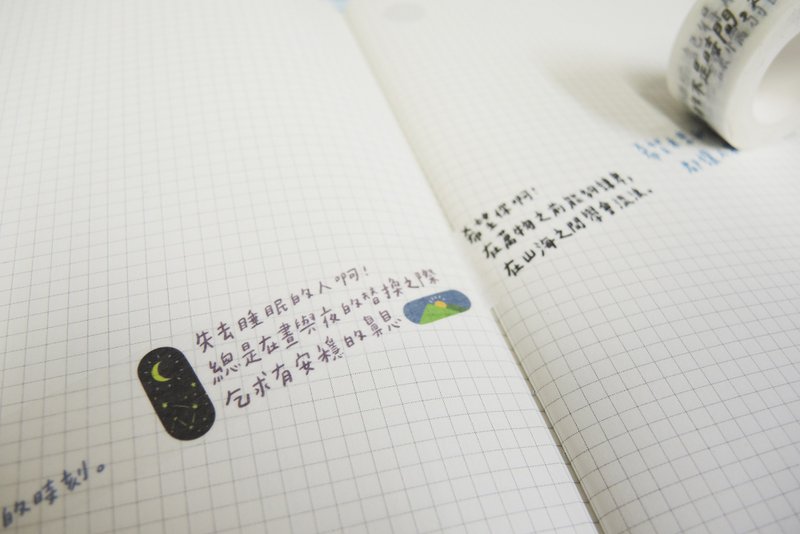 失去睡眠的人啊!
總是在晝與夜的替換之際
乞求有安穩的鼻息
的時刻。
希望你啊!
在萬物之前能夠謙卑,
在山海之間學會流浪。
不是時間